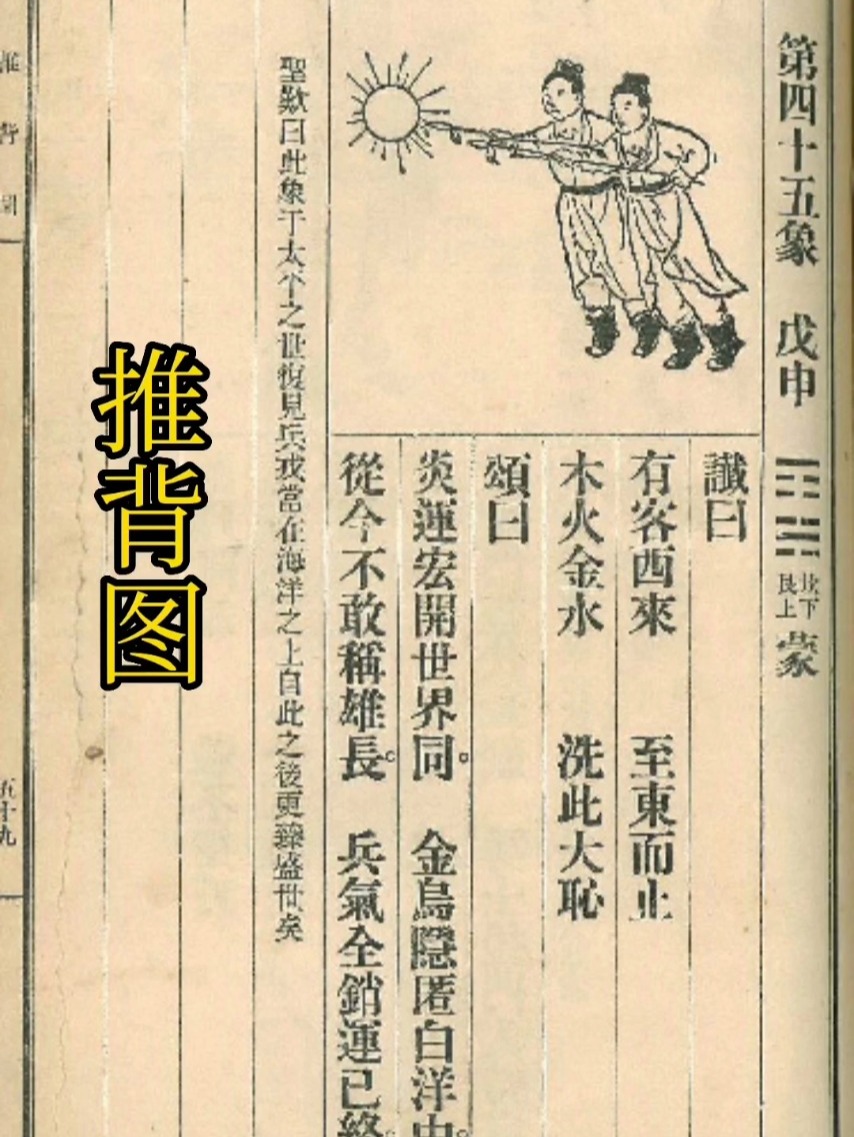 第四十五象 戊申 坎下艮上 蒙
讖曰
有客西來 至東而止
木火金水 洗此大恥
頌曰
炎運宏開世界同。 金烏隱匿白洋中。
從今不敢稱雄長。 兵氣全銷運已終。
聖歎曰此象于太平之世復見兵戎當在海洋之上自此之後更臻盛世矣
推背图
推背圖
五十九